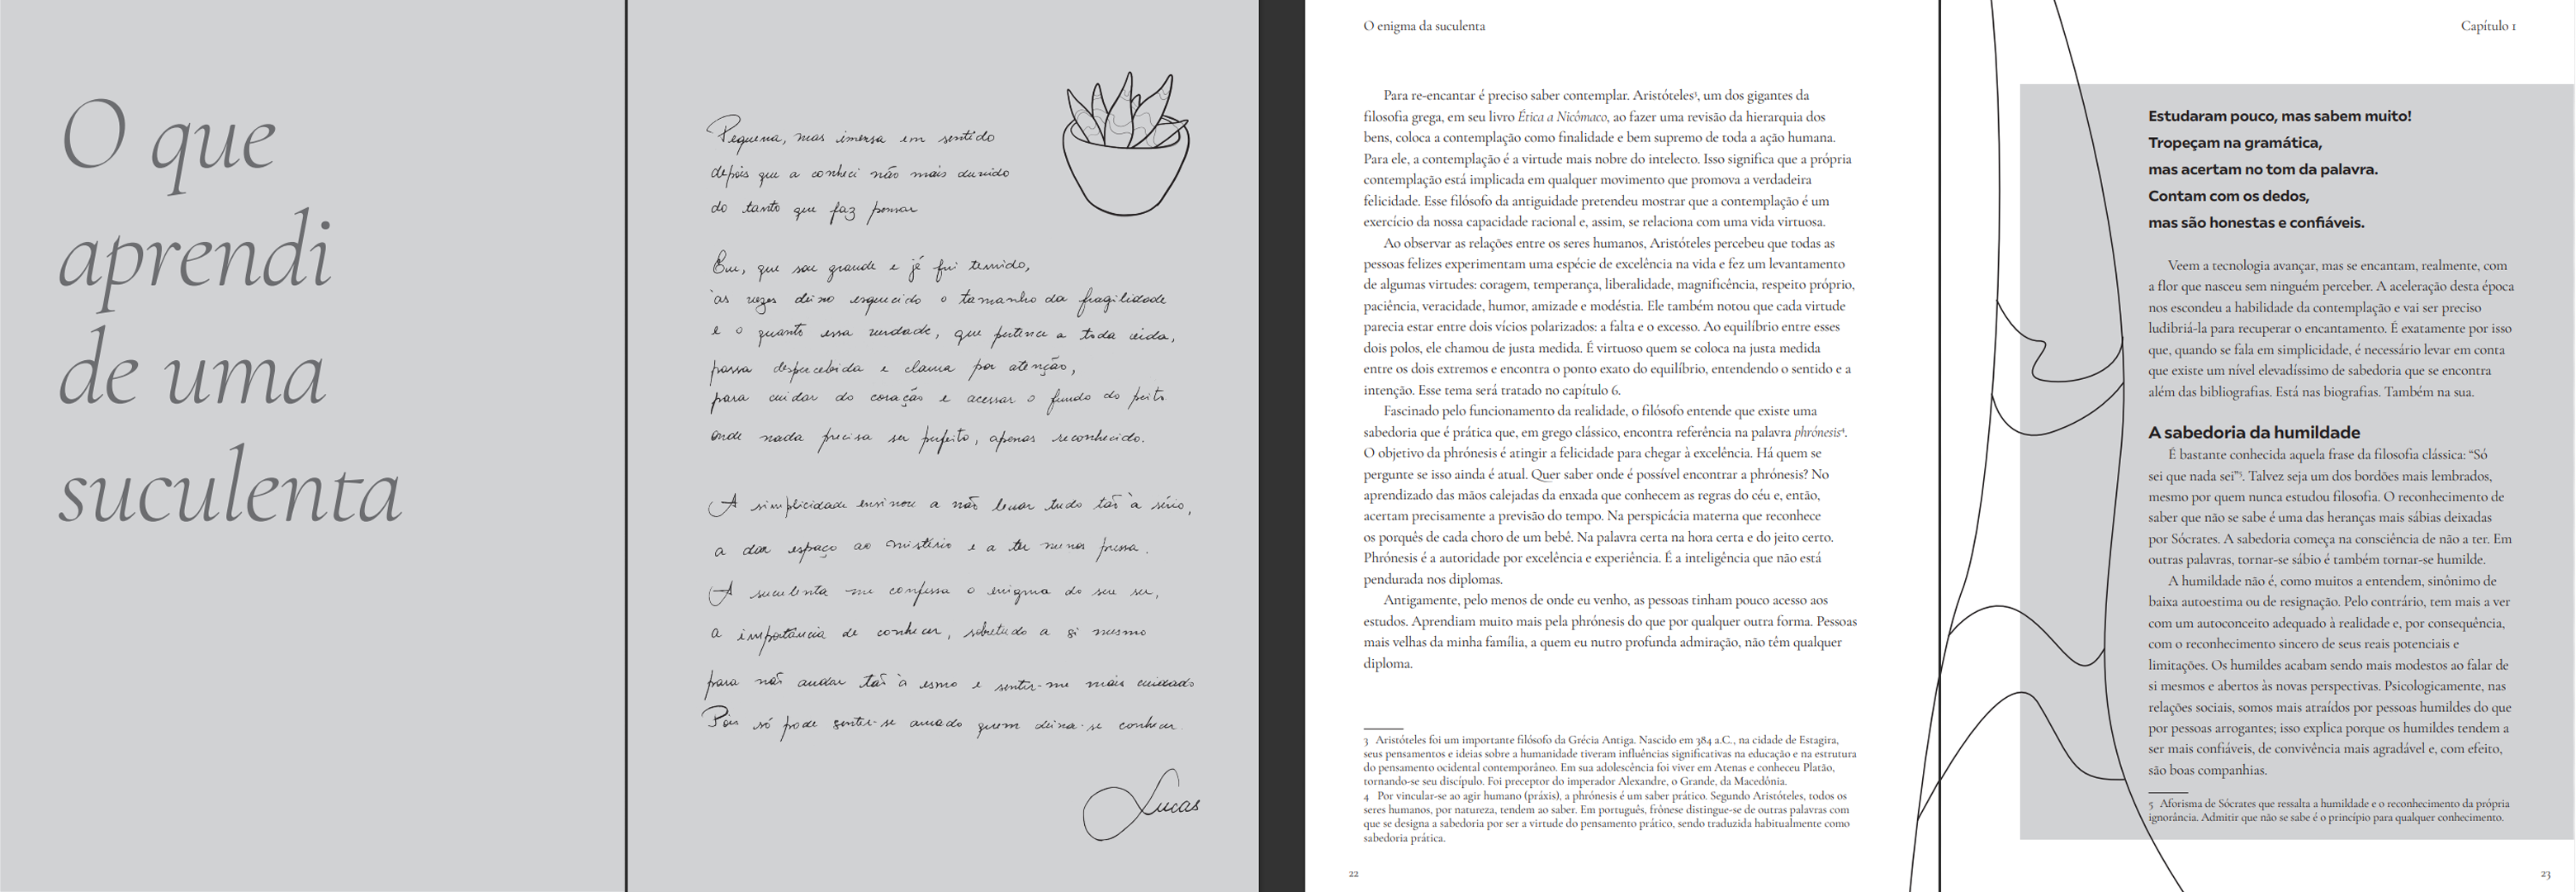 O que
aprendi
de uma
suculenta
Pequena, mas imensa em sentido
depois que a conheci não mais duvido
do tanto que faz pensar
Eu, que sou grande e já fui temido,
às vezes deixo esquecido o tamanho da fragilidade
e o quanto essa verdade, que pertence a toda vida,
passa despercebida e clama por atenção,
para cuidar do coração e acessar o fundo do peito
onde nada precisa ser perfeito, apenas reconhecido.
A simplicidade ensinou a não levar tudo tão à sério,
a dar espaço ao mistério e a ter menos pressa.
A suculenta me confessa o enigma do seu ser,
a importância de conhecer, sobretudo a si mesmo
para não andar tão à esmo e sentir-me mais cuidado
Pois só pode sentir-se amado quem deixa-se conhecer.
Lucas
O enigma da suculenta
Para re-encantar é preciso saber contemplar. Aristóteles³, um dos gigantes da
filosofia grega, em seu livro Ética a Nicômaco, ao fazer uma revisão da hierarquia dos
bens, coloca a contemplação como finalidade e bem supremo de toda a ação humana.
Para ele, a contemplação é a virtude mais nobre do intelecto. Isso significa que a própria
contemplação está implicada em qualquer movimento que promova a verdadeira
felicidade. Esse filósofo da antiguidade pretendeu mostrar que a contemplação é um
exercício da nossa capacidade racional e, assim, se relaciona com uma vida virtuosa.
Ao observar as relações entre os seres humanos, Aristóteles percebeu que todas as
pessoas felizes experimentam uma espécie de excelência na vida e fez um levantamento
de algumas virtudes: coragem, temperança, liberalidade, magnificência, respeito próprio,
paciência, veracidade, humor, amizade e modéstia. Ele também notou que cada virtude
parecia estar entre dois vícios polarizados: a falta e o excesso. Ao equilíbrio entre esses
dois polos, ele chamou de justa medida. É virtuoso quem se coloca na justa medida
entre os dois extremos e encontra o ponto exato do equilíbrio, entendendo o sentido e a
intenção. Esse tema será tratado no capítulo 6.
Fascinado pelo funcionamento da realidade, o filósofo entende que existe uma
sabedoria que é prática que, em grego clássico, encontra referência na palavra phrónesis⁴.
O objetivo da phrónesis é atingir a felicidade para chegar à excelência. Há quem se
pergunte se isso ainda é atual. Quer saber onde é possível encontrar a phrónesis? No
aprendizado das mãos calejadas da enxada que conhecem as regras do céu e, então,
acertam precisamente a previsão do tempo. Na perspicácia materna que reconhece
os porquês de cada choro de um bebê. Na palavra certa na hora certa e do jeito certo.
Phrónesis é a autoridade por excelência e experiência. É a inteligência que não está
pendurada nos diplomas.
Antigamente, pelo menos de onde eu venho, as pessoas tinham pouco acesso aos
estudos. Aprendiam muito mais pela phrónesis do que por qualquer outra forma. Pessoas
mais velhas da minha família, a quem eu nutro profunda admiração, não têm qualquer
diploma.
3 Aristóteles foi um importante filósofo da Grécia Antiga. Nascido em 384 a.C., na cidade de Estagira,
seus pensamentos e ideias sobre a humanidade tiveram influências significativas na educação e na estrutura
do pensamento ocidental contemporâneo. Em sua adolescência foi viver em Atenas e conheceu Platão,
tornando-se seu discípulo. Foi preceptor do imperador Alexandre, o Grande, da Macedônia.
4 Por vincular-se ao agir humano (práxis), a phrónesis é um saber prático. Segundo Aristóteles, todos os
seres humanos, por natureza, tendem ao saber. Em português, frônese distingue-se de outras palavras com
que se designa a sabedoria por ser a virtude do pensamento prático, sendo traduzida habitualmente como
sabedoria prática.
22
Capítulo 1
Estudaram pouco, mas sabem muito!
Tropeçam na gramática,
mas acertam no tom da palavra.
Contam com os dedos,
mas são honestas e confiáveis.
Veem a tecnologia avançar, mas se encantam, realmente, com
a flor que nasceu sem ninguém perceber. A aceleração desta época
nos escondeu a habilidade da contemplação e vai ser preciso
ludibriá-la para recuperar o encantamento. É exatamente por isso
que, quando se fala em simplicidade, é necessário levar em conta
que existe um nível elevadíssimo de sabedoria que se encontra
além das bibliografias. Está nas biografias. Também na sua.
A sabedoria da humildade
É bastante conhecida aquela frase da filosofia clássica: “Só
sei que nada sei”⁵. Talvez seja um dos bordões mais lembrados,
mesmo por quem nunca estudou filosofia. O reconhecimento de
saber que não se sabe é uma das heranças mais sábias deixadas
por Sócrates. A sabedoria começa na consciência de não a ter. Em
outras palavras, tornar-se sábio é também tornar-se humilde.
A humildade não é, como muitos a entendem, sinônimo de
baixa autoestima ou de resignação. Pelo contrário, tem mais a ver
com um autoconceito adequado à realidade e, por consequência,
com o reconhecimento sincero de seus reais potenciais e
limitações. Os humildes acabam sendo mais modestos ao falar de
si mesmos e abertos às novas perspectivas. Psicologicamente, nas
relações sociais, somos mais atraídos por pessoas humildes do que
por pessoas arrogantes; isso explica porque os humildes tendem a
ser mais confiáveis, de convivência mais agradável e, com efeito,
são boas companhias.
5 Aforisma de Sócrates que ressalta a humildade e o reconhecimento da própria
ignorância. Admitir que não se sabe é o princípio para qualquer conhecimento.
23